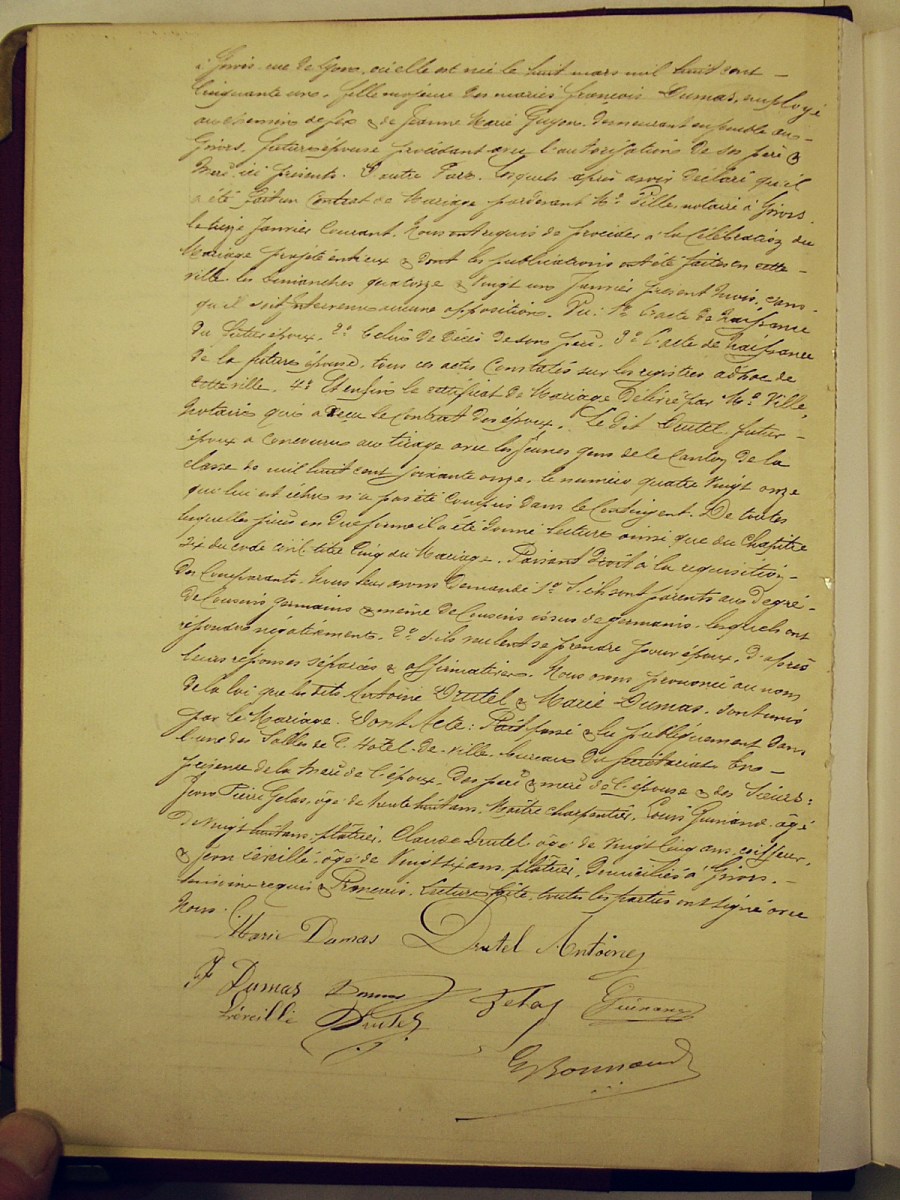 à Givors rue de Gono, où elle est née le huit mars mil huit cent
Cinquante uns, fille majeure des mariés françois Dumas, employé
au chemin de fer & de Jeanne Marie Guyon, demeurant ensemble au
Givors, future épouse procédant avec l'autorisation de ses père &
mère ici présents. D'autre Part. Lesquels après avoir déclaré qu'il
a été fait un Contrat de Mariage pardevant Me. Ville, notaire à Givors
le Janvier Courant. Nous ont requis de procéder à la Célébration du
Mariage projeté entr'eux & dont les publications ont été faites en cette
ville, les Dimanches quatorze & Vingt un Janvier présent mois, sans
qu'il soit Intervenu aucune opposition. Vu: 1o L'acte de Naissance
du futur époux. 2o Celui de Décès de son père. 3o L'acte de Naissance
de la future épouse, tous ces actes Constatés sur les registres adhoc de
cette ville. 4o Et enfin le certificat de Mariage délivré par Me. Ville,
Notaire qui a Reçu le Contrat des époux. Le dit Drutel, futur
époux a Concouru au tirage avec les Jeunes gens de le Canton de la
classe de mil huit cent soixante onze, le numéro quatre Vingt onze
qui lui est échu n'a pas été Compris dans le Contingent. De toutes
lesquelles pièces en due forme il a été donné lecture ainsi que du Chapitre
six du code civil, titre Cinq du Mariage. Faisant Droit à la réquisition
des Comparants. Nous leur avons Demandé 1o S'ils sont parents au Degré
de Cousins germains & même de Cousins issus de germains, lesquels ont
répondu négativement. 2o S'ils veulent se prendre pour époux. D'après
leurs réponses séparées & affirmatives. Nous avons prononcé au nom
de la loi que les dits Antoine Drutel & Marie Dumas, sont unis
par le Mariage. Dont Acte: Fait passé & lu publiquement dans
l'une des Salles de l'Hotel-de-Ville, bureau du secrétariat En
présence de la mère de l'époux, des père & mère de l'épouse & des Sieurs:
Jean Pierre Gelas, âgé de trente huit ans, Maître charpentier, Louis Guinand, âgé
de Vingt huit ans, plâtrier, Claude Drutel âgé de Vingt Cinq ans, coiffeur,
& Jean Léveillé, âgé de Vingt six ans, plâtrier, Domiciliés à Givors,
témoins requis & Français. Lecture faite, toutes les parties ont signé avec
Nous.
Marie Dumas Drutel Antoine
F Dumas Gelas Guinand
Léveillé Drutel
G Bonnand